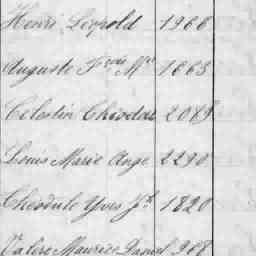 Henri Léopold 1968
Auguste Fçois Mie 1663
Célestin Théodore 2089
Louis Marie Ange 2290
Théodule Yves Jh 1820
Valère Maurice Daniel 908